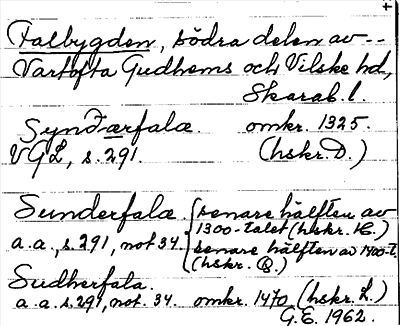 Falbygden, södra delen av --
Vartofta Gudhems och Vilske hd,
Skarab. l.
Syndærfalæ. omkr. 1325.
VGL, s. 291. (hskr. D.)
Sunderfalæ { senare hälften av
1300-talet (hskr. K.)
a.a., s. 291, not 34. senare hälften av 1400-t.
(hskr. Q.)
Sudherfala.
a.a. s. 291, not. 34. omkr. 1470 (hskr. L.)
G.E. 1962.